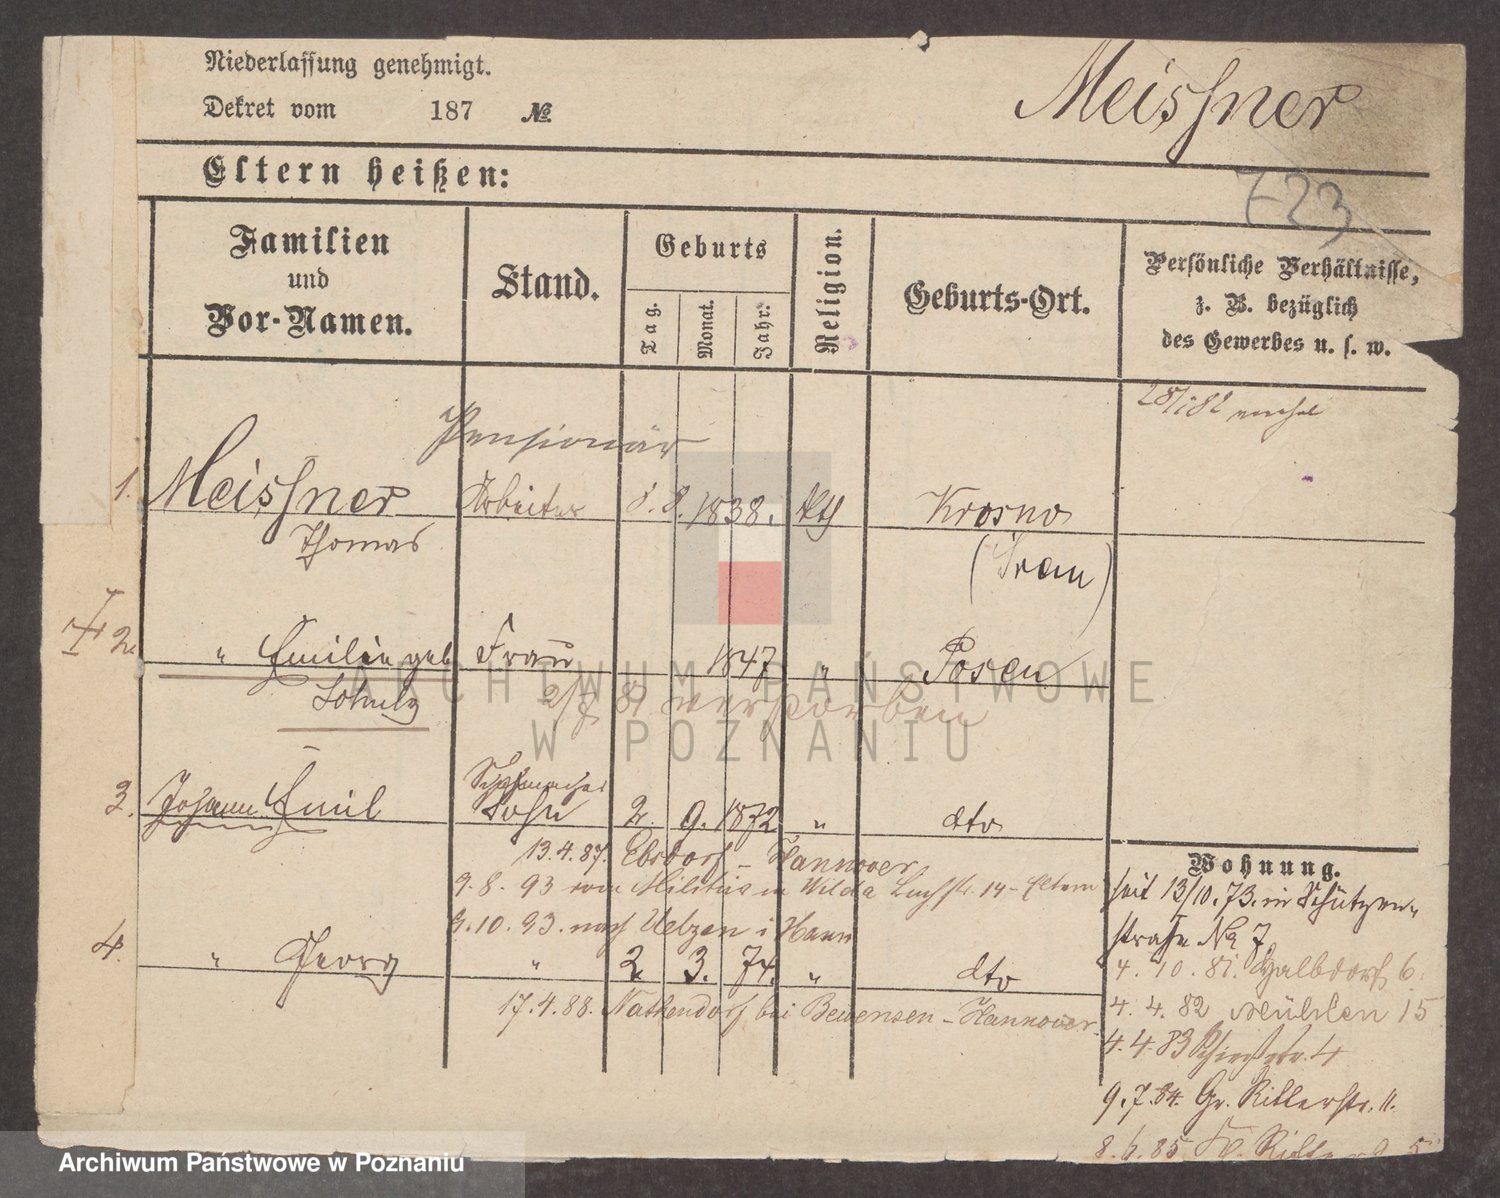 Niederlassung genehmigt.
Dekret vom 187 №
Meissner
Eltern heißen:
723
Familien
und
Vor-Namen.
Stand.
Geburts
Tag.
Monat.
Jahr.
Religion.
Geburts-Ort.
Persönliche Verhältnisse,
z. B. bezüglich
des Gewerbes u. s. w.
Pensionär
1. Meissner Arbeiter 8. 1838. kth Krosno
Thomas
2. " Emilie geb. Frau 1847 " Posen
81 verstorben
Schuhmacher
3. Johann Emil Sohn 2. 9. 1872 " dto
13.4.87. Ebsdorf - Hannover
9.8.93 vom in Wilda 14 - Eltern
9.10.93. nach Uelzen i Hann
4. " Georg " 2. 3. 74. " dto
17.4.88. Nathendorf bei Bewensen - Hannover.
Wohnung.
seit 13/10.73. in Schützen-
straße No 7.
4. 10. 81. Halbdorf 6.
4. 4. 82 Mühlen 15
4.4.83 4
9.7.84. Gr. Ritterstr. 11.
8.6.85 5
ARCHIWUM PAŃSTWOWE
W POZNANIU
Archiwum Państwowe w Poznaniu